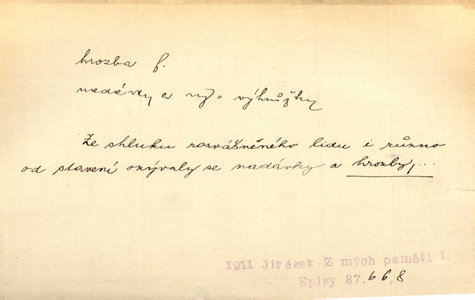 hrozba f.
nadávky a výhružky
Ze shluku rozvášněného lidu i různo
od stavení ozývaly se nadávky a hrozby,...
1911 Jirásek Z mých pamětí I.
Spisy 87. 66,8